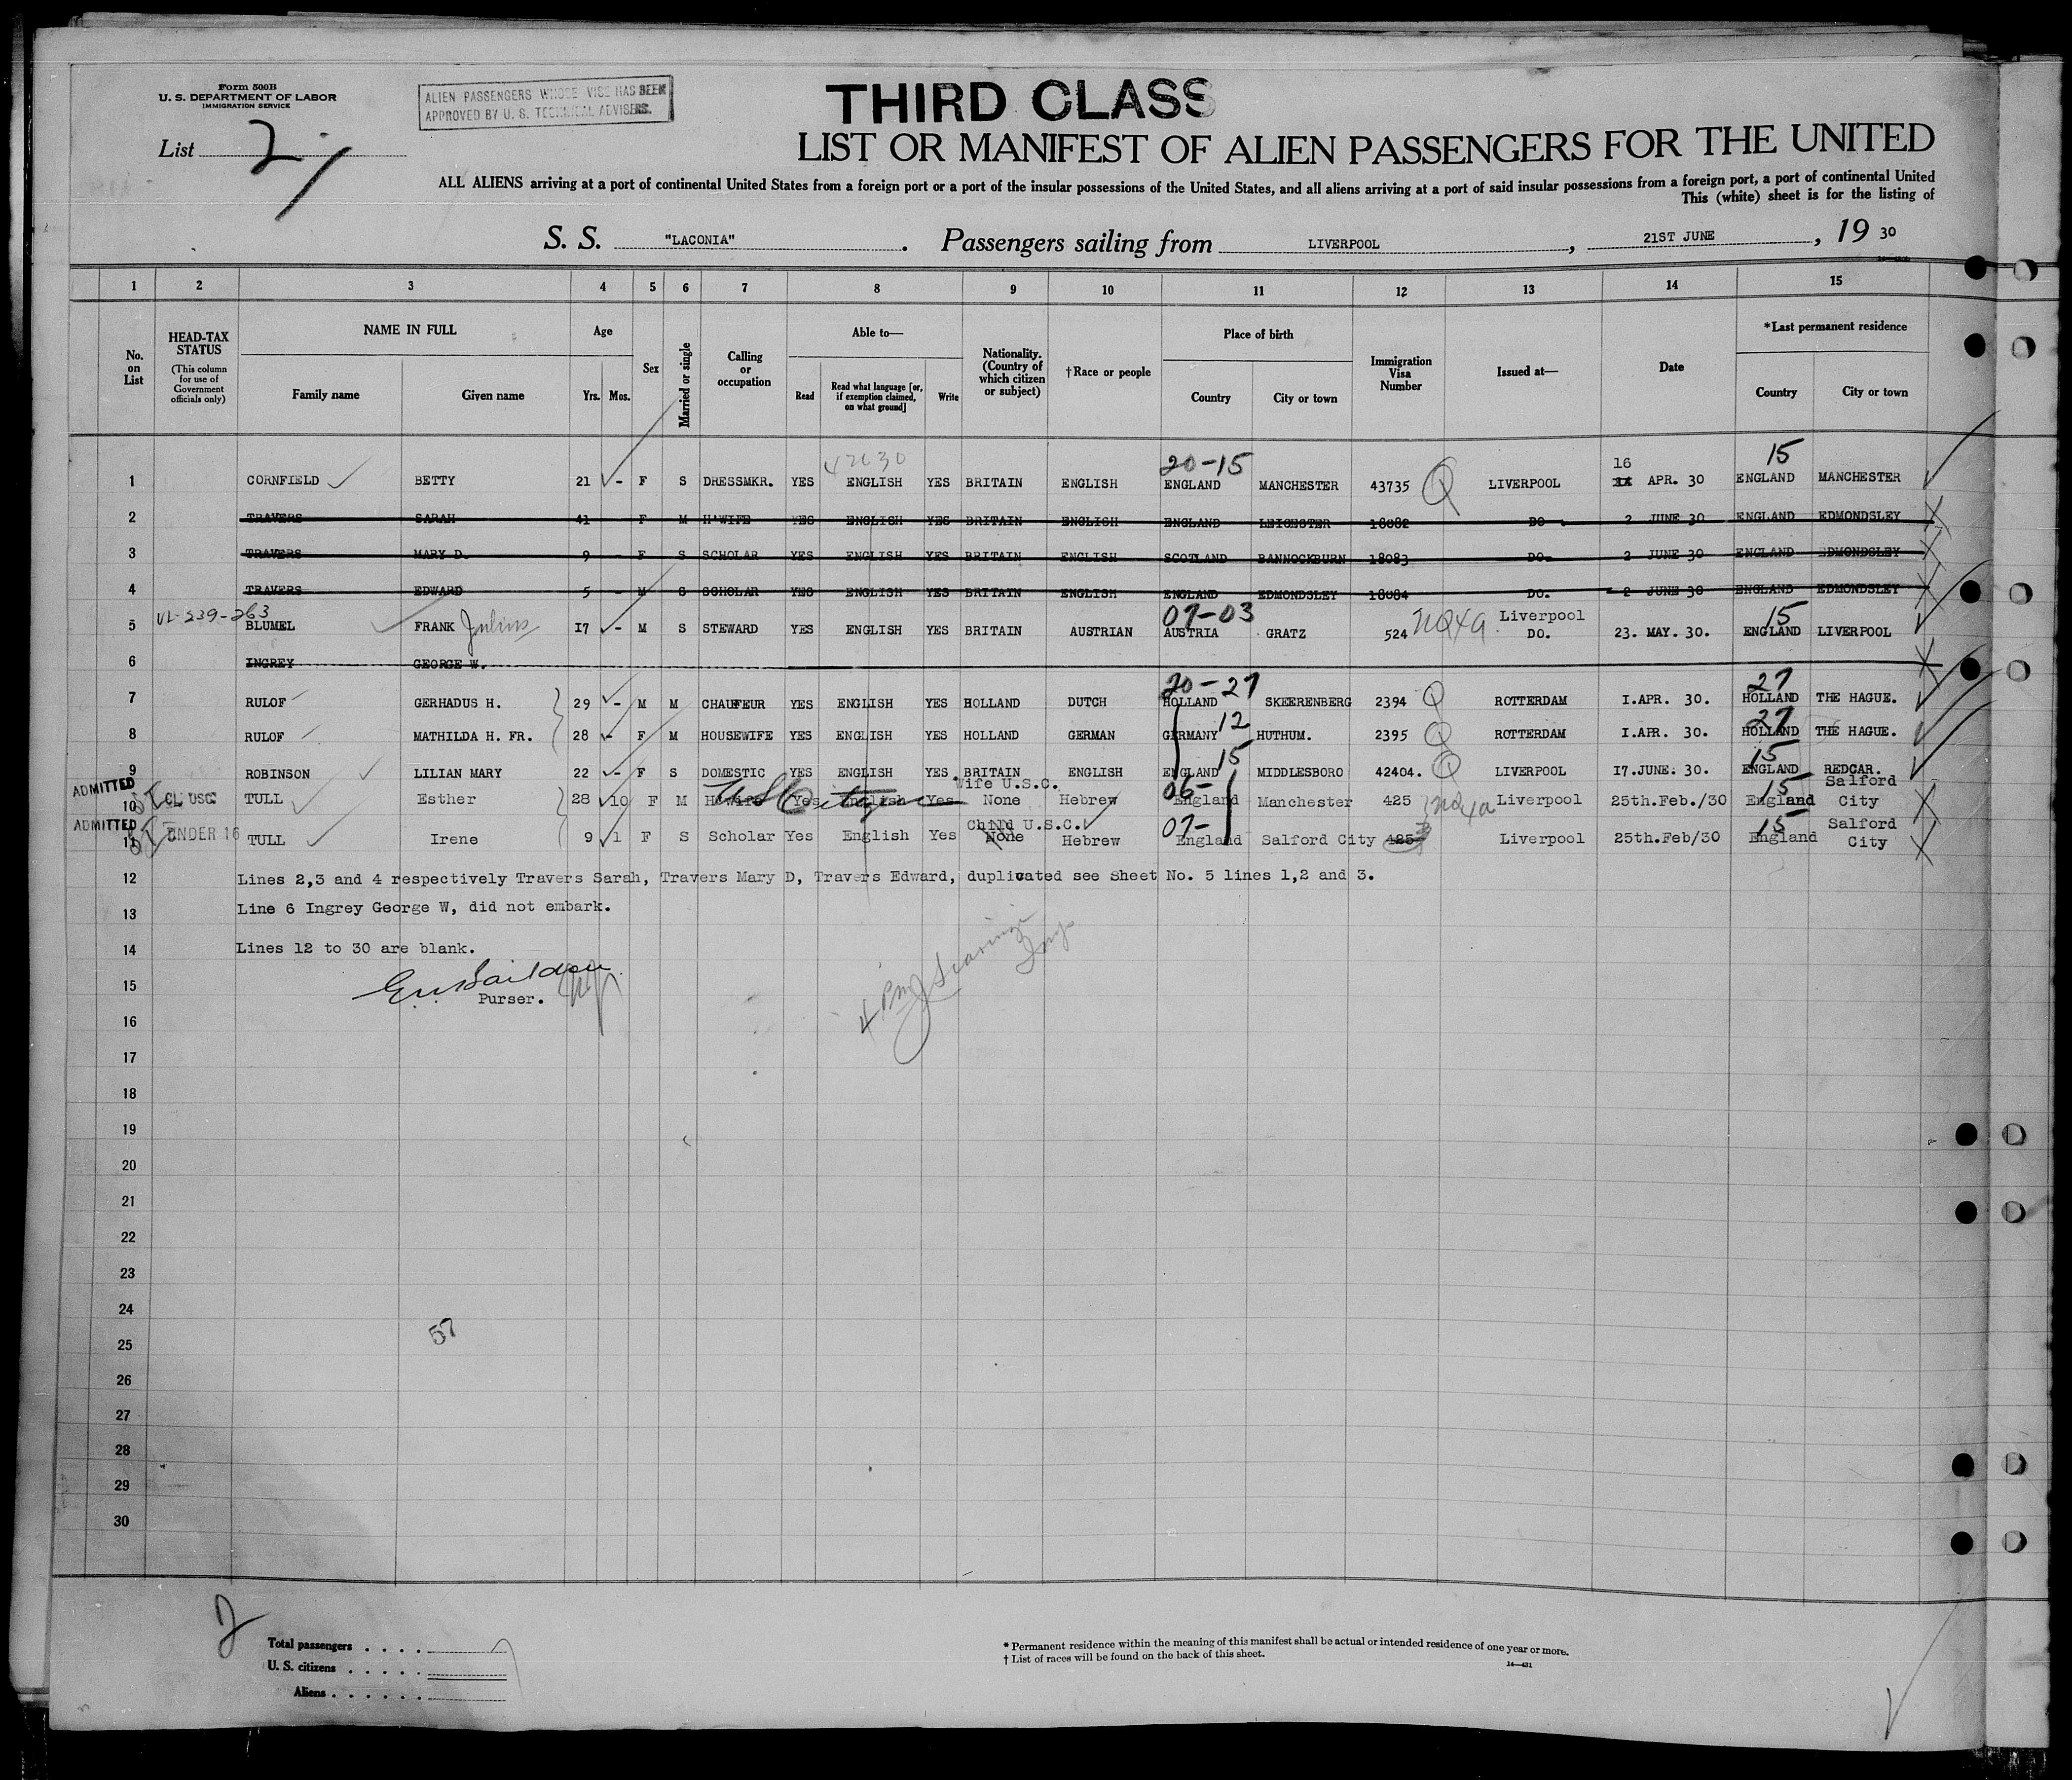 Form 500B
U. S. DEPARTMENT OF LABOR
IMMIGRATION SERVICE
ALIEN PASSENGERS WHOSE VICE HAS BEEN
APPROVED BY U. S. TECHNICAL ADVISERS.
THIRD CLASS
List 2
LIST OR MANIFEST OF ALIEN PASSENGERS FOR THE UNITED
ALL ALIENS arriving at a port of continental United States from a foreign port or a port of the insular possessions of the United States, and all aliens arriving at a port of said insular possessions from a foreign port, a port of continental United
This (white) sheet is for the listing of
S. S. "LACONIA". Passengers sailing from LIVERPOOL, 21ST JUNE, 19 30
1 2 3 4 5 6 7 8 9 10 11 12 13 14 15
No. on List
HEAD-TAX STATUS
(This column for use of Government officials only)
NAME IN FULL
Family name Given name
Age
Yrs. Mos.
Sex
Married or single
Calling or occupation
Able to—
Read Read what language [or, if exemption claimed, on what ground] Write
Nationality. (Country of which citizen or subject)
†Race or people
Place of birth
Country City or town
Immigration Visa Number
Issued at—
Date
*Last permanent residence
Country City or town
42630 20-15 16 15
1 CORNFIELD BETTY 21 - F S DRESSMKR. YES ENGLISH YES BRITAIN ENGLISH ENGLAND MANCHESTER 43735 Q LIVERPOOL APR. 30 ENGLAND MANCHESTER
2 TRAVERS SARAH 41 F M H'WIFE YES ENGLISH YES BRITAIN ENGLISH ENGLAND LEICESTER 18082 DO 2 JUNE 30 ENGLAND EDMONDSLEY
3 TRAVERS MARY D. 9 - F S SCHOLAR YES ENGLISH YES BRITAIN ENGLISH SCOTLAND BANNOCKBURN 18083 DO 2 JUNE 30 ENGLAND EDMONDSLEY
4 TRAVERS EDWARD 5 - M S SCHOLAR YES ENGLISH YES BRITAIN ENGLISH ENGLAND EDMONDSLEY 18084 DO. 2 JUNE 30 ENGLAND EDMONDSLEY
VL-239-263 07-03 Liverpool 15
5 BLUMEL FRANK Julius 17 - M S STEWARD YES ENGLISH YES BRITAIN AUSTRIAN AUSTRIA GRATZ 524 NQ4a DO. 23. MAY. 30. ENGLAND LIVERPOOL
6 INGREY GEORGE W.
20-27 27
7 RULOF GERHADUS H. 29 - M M CHAUFFEUR YES ENGLISH YES HOLLAND DUTCH HOLLAND SKEERENBERG 2394 Q ROTTERDAM I.APR. 30. HOLLAND THE HAGUE.
12 27
8 RULOF MATHILDA H. FR. 28 - F M HOUSEWIFE YES ENGLISH YES HOLLAND GERMAN GERMANY HUTHUM. 2395 Q ROTTERDAM I.APR. 30. HOLLAND THE HAGUE.
15 15
9 ROBINSON LILIAN MARY 22 - F S DOMESTIC YES ENGLISH YES BRITAIN ENGLISH ENGLAND MIDDLESBORO 42404. Q LIVERPOOL I7.JUNE. 30. ENGLAND REDCAR.
ADMITTED US Citizen Wife U.S.C. 06- 15 Salford
10 CL USC TULL Esther 28 10 F M H'wife Yes English Yes None Hebrew England Manchester 425 NQ4a Liverpool 25th.Feb./30 England City
ADMITTED Child U.S.C. 07- 15 Salford
11 UNDER 16 TULL Irene 9 1 F S Scholar Yes English Yes None Hebrew England Salford City 425 Liverpool 25th.Feb/30 England City
12 Lines 2,3 and 4 respectively Travers Sarah, Travers Mary D, Travers Edward, duplicated see Sheet No. 5 lines 1,2 and 3.
13 Line 6 Ingrey George W, did not embark.
14 Lines 12 to 30 are blank.
15
Purser.
16
17
18
19
20
21
22
23
24
57
25
26
27
28
29
30
2
Total passengers . . . .
U. S. citizens . . . . .
Aliens . . . . . .
* Permanent residence within the meaning of this manifest shall be actual or intended residence of one year or more.
† List of races will be found on the back of this sheet.
14—431